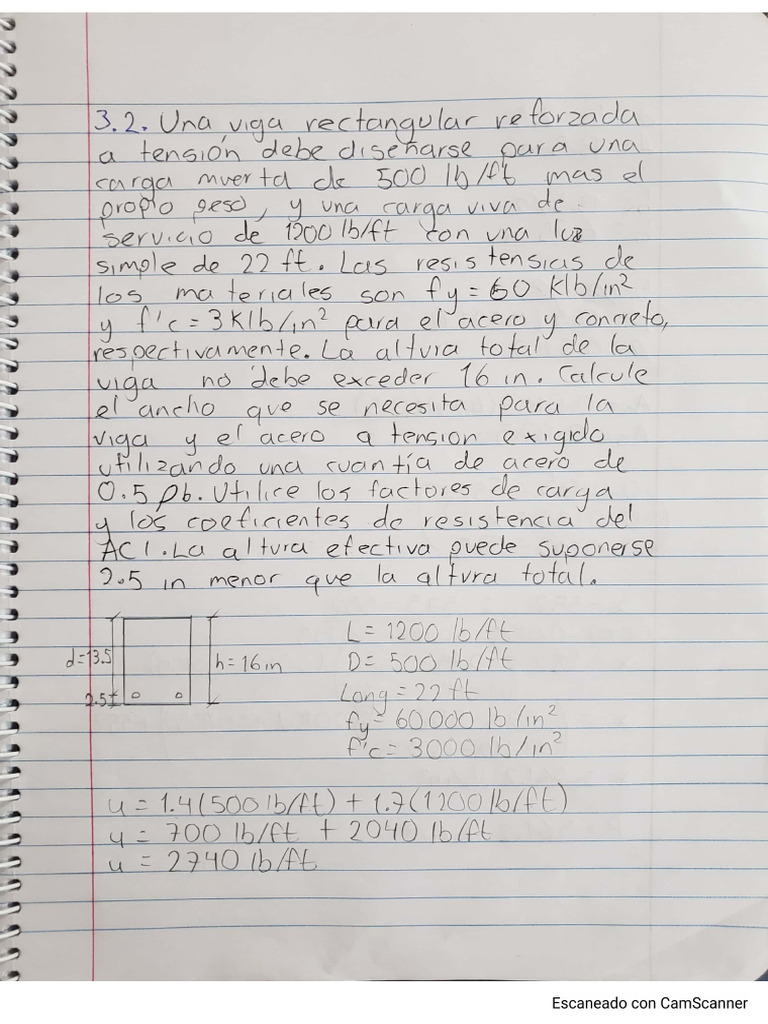 3.2. Una viga rectangular reforzada
a tensión debe diseñarse para una
carga muerta de 500 lb/ft mas el
propio peso, y una carga viva de
servicio de 1200 lb/ft con una luz
simple de 22 ft. Las resistensias de
los materiales son fy = 60 Klb/in²
y f'c = 3 Klb/in² para el acero y concreto,
respectivamente. La altura total de la
viga no debe exceder 16 in. Calcule
el ancho que se necesita para la
viga y el acero a tension exigido
utilizando una cuantía de acero de
0.5 ρb. Utilice los factores de carga
y los coeficientes de resistencia del
ACI. La altura efectiva puede suponerse
2.5 in menor que la altura total.
d=13.5
h=16in
2.5
L = 1200 lb/ft
D = 500 lb/ft
Long = 22 ft
fy = 60000 lb/in²
f'c = 3000 lb/in²
u = 1.4(500 lb/ft) + 1.7(1200 lb/ft)
u = 700 lb/ft + 2040 lb/ft
u = 2740 lb/ft
Escaneado con CamScanner